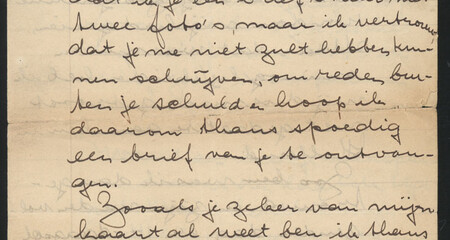 dat ik je een brief
twee foto's, maar ik vertrouw
dat je me niet zult hebben kun-
nen schrijven, om reden bui-
ten je schuld en hoop ik
daarom thans spoedig
een brief van je te ontvan-
gen.
Zooals je zeker van mijn
kaart al weet ben ik thans